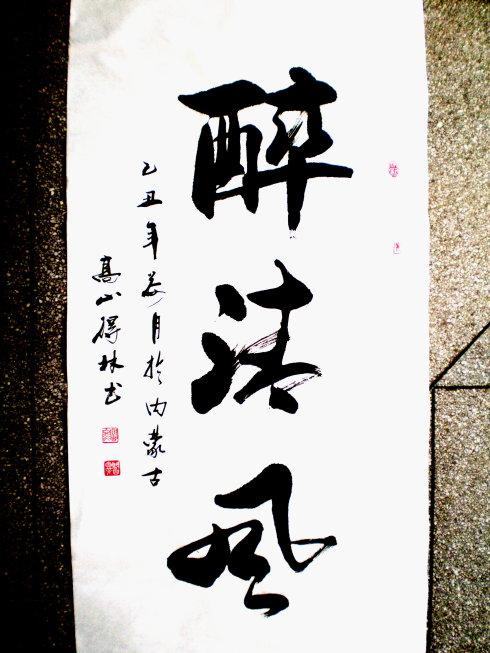 醉清风
乙丑年荷月於内蒙古
高山得林书